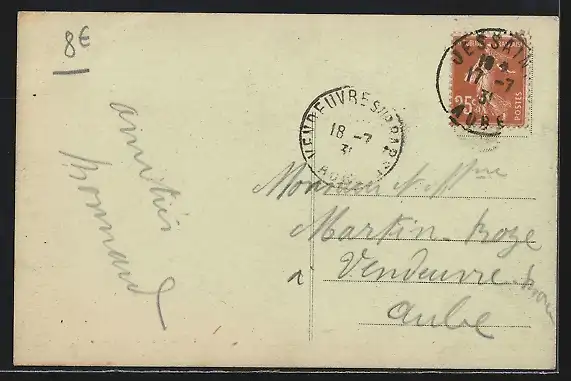 8€
JESSAINS
17 -7
31
AUBE
25c
POSTES
VENDEUVRE S/ BARSE
18 -7
31
AUBE
amitiés
Monsieur et Mme
Martin
à Vendeuvre
Aube